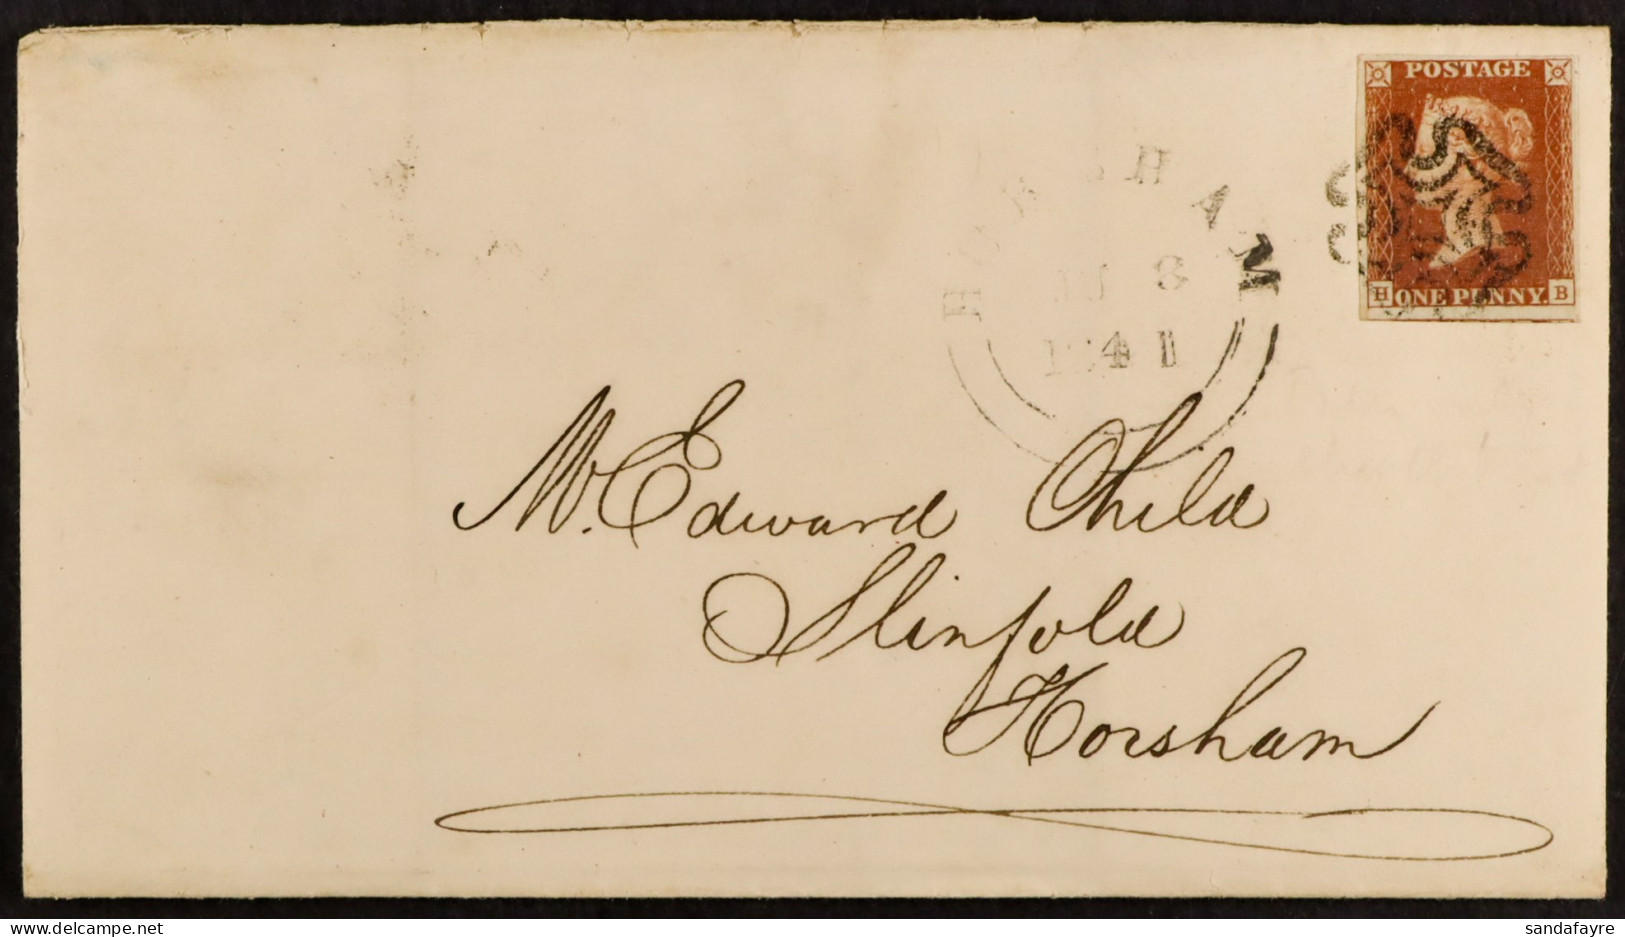 POSTAGE
HORSHAM
8
1841
H ONE PENNY. B
Mr. Edward Child
Slinfold
Horsham
sandafayre